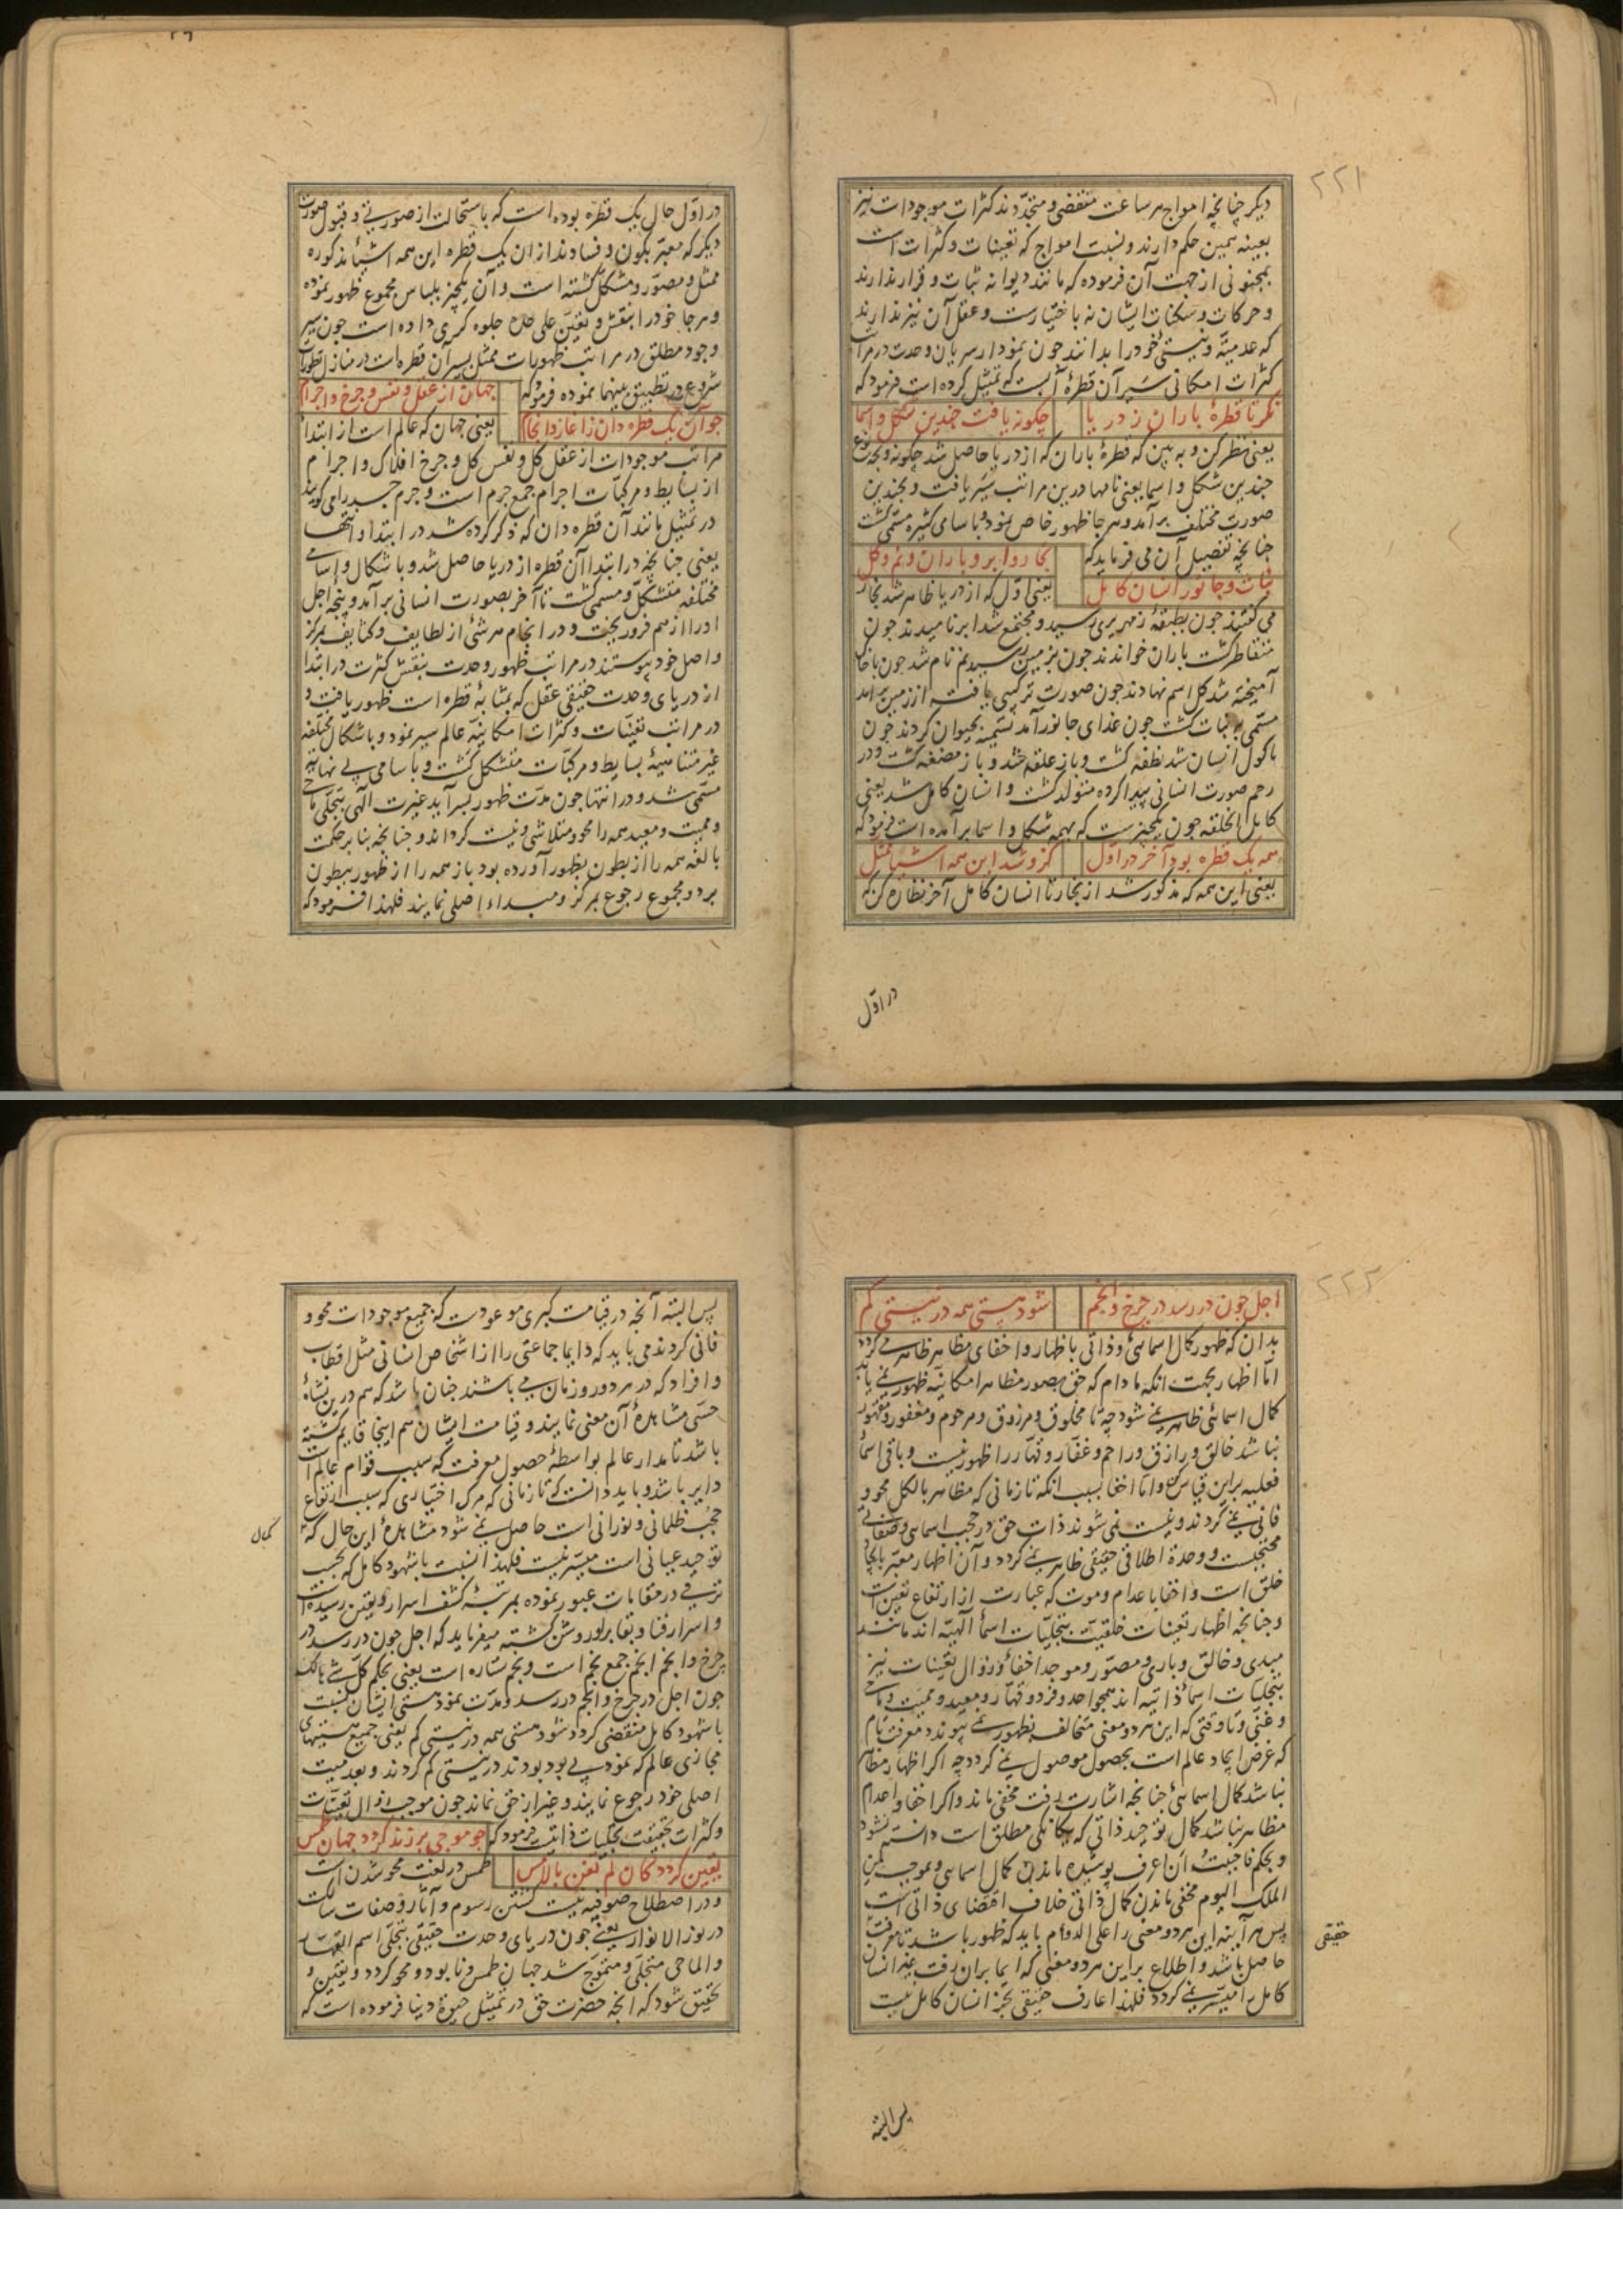 ۲۲۱
دیکر چنانچه امواج هر ساعت منقضی و متجدّدند کثرات موجودات نیز
بعینه همین حکم دارند و نسبت امواج که تعینات و کثرات است
بمجنونی از جهت آن فرموده که مانند دیوانه ثبات و قرار ندارند
و حرکات و سکنات ایشان نه باختیارست و عقل آن نیز ندارند
که عدمیّة و نیستی خود را بدانند جون نمودار سریان وحدت در مرآت
کثرات امکانی سَیر آن قطرهٔ آبست که تمثیل کرده است فرمود که
نکر تا قطرهٔ باران ز دریا چکونه یافت چندین شکل و اسما
یعنی نظر کن و به بین که قطرهٔ باران که از دریا حاصل شد چکونه و بچه نوع
چندین شکل و اسما یعنی نامها درین مراتب سَیر یافت و بچندین
صورت مختلف برآمد و هر جا ظهور خاص نمود و باسامی کثیره مسمّی کشت
چنانچه تفصیل آن می فرماید که بخار و ابر و باران و نم و کل
نبات و جانور انسان کامل یعنی اوّل که از دریا ظاهر شد بخار
می کفتند جون بطبقهٔ زمهریری رسید و مجتمع شد ابر نامیدند جون
متقاطر کشت باران خواندند جون بزمین رسید نم نام شد جون با خاک
آمیخته شد کل اسم نهادند جون صورت ترکیبی یافت و از زمین برآمد
مسمّی به نبات کشت جون غذای جانور آمد تسمیه بحیوان کردند جون
ماکول انسان شد نطفه کشت و باز علقه شد و باز مضغه کشت و در
رحم صورت انسانی پیدا کرده متولد کشت و انسان کامل شد یعنی
کامل الخلقه جون یکچیزست که بهمه شکل و اسما برآمده است فرمود که
همه یک قطره بود آخر در اوّل کزو شد این همه اشیا ممثل
یعنی این همه که مذکور شد از بخار تا انسان کامل آخر نظاره کن که
در اوّل
در اوّل حال یک قطره بوده است که باستحالت از صورتی و قبول صورت
دیکر که معبّر بکون و فسادند از ان یک قطره این همه اشیأ مذکوره
ممثل و مصوّر و مشکل کشته است و آن یکچیز بلباس مجموع ظهور نموده
و هر جا خود را بنقش و تعیّن علی حده جلوه کری داده است جون سیر
وجود مطلق در مراتب ظهورات ممثل بسیر آن قطره است در منازل تطورات
شروع در تطبیق بینهما نموده فرمود که جهان از عقل و نفس و چرخ و اجرام
جو آن یک قطره دان ز اغاز و انجام یعنی جهان که عالم است از ابتدأ
مراتب موجودات از عقل کل و نفس کل و چرخ افلاک و اجرام
از بسایط و مرکبّات اجرام جمع جرم است و جرم جسد را می کویند
در تمثیل مانند آن قطره دان که ذکر کرده شد در ابتدا و انتها
یعنی چنانچه در ابتدا آن قطره از دریا حاصل شد و باشکال و اسامی
مختلفه متشکل و مسمی کشت تا آخر بصورت انسانی برآمد و پنجه اجل
او را از هم فرو ریخت و در انجام هر شئ از لطایف و کثایف بمرکز
و اصل خود پیوستند در مراتب ظهور وحدت بنقش کثرت در ابتدا
از دریای وحدت حقیقی عقل که بمثابهٔ قطره است ظهور یافت و
در مراتب تعیّنات و کثرات امکانیّه عالم سیر نمود و باشکال مختلفه
غیر متناهیهٔ بسایط و مرکبّات متشکل کشت و باسامی بی نهایة
مسمّی شد و در انتها جون مدّت ظهور بسر آید غیرت الهی بتجلّی ماحی
و ممیت و معید همه را محو و متلاشی و نیست کرداند و چنانچه بنا بر حکمت
بالغه همه را از بطون بظهور آورده بود باز همه را از ظهور ببطون
برد و مجموع رجوع بمرکز و مبداء اصلی نمایند فلهذا فرمود که
۲۲۲
اجل جون در رسد در چرخ و انجم شود هستی همه در نیستی کم
بدان که ظهور کمال اسمائی و ذاتی باظهار و اخفای مظاهر ظاهر می کردد
امّا اظهار بجهت انکه مادام که حق بصور مظاهر امکانیّه ظهور نمی یابد
کمال اسمائی ظاهر نمی شود چه تا مخلوق و مرزوق و مرحوم و مغفور و مقهور
نباشد خالق و رازق و راحم و غفار و قهّار را ظهور نیست و باقی اسمأ
فعلیه برین قیاس کن و امّا اخفا بسبب انکه تا زمانی که مظاهر بالکل محو و
فانی نمی کردند و نیست نمی شوند ذات حق در حجب اسمائی و صفاتی
محتجبست و وحدة اطلاقی حقیقی ظاهر نمی کردد و آن اظهار معبّر بایجاد
خلق است و اخفا باعدام و موت که عبارت از ارتفاع تعین است
و چنانچه اظهار تعینات خلقیّت بتجلیّات اسمأ الهیّه اند مانند
مبدی و خالق و باری و مصوّر و موجد اخفأ و زوال تعینات نیز
بتجلیات اسمأ ذاتیه اند همچو احد و فرد و قهّار و معید و ممیت و ماحی
و غنّی و تا وقتی که این هر دو معنی متخالف بظهور نمی پیوندد معرفت تام
که غرض ایجاد عالم است بحصول موصول نمی کردد چه اکر اظهار مظاهر
نباشد کمال اسمائی چنانچه اشارت رفت مخفی ماند و اکر اخفا و اعدام
مظاهر نباشد کمال توحید ذاتی که یکانکی مطلق است دانسته نشود
و بحکم فاحببت ان اعرف پوشیده ماندن کمال اسمائی و بموجب لمن
الملک الیوم مخفی ماندن کمال ذاتی خلاف اقتضای ذاتی است
پس هر آینه این هر دو معنی را علی الدوام باید که ظهور باشد تا معرفت
حقیقی
حاصل باشد و اطلاع براین هر دو معنی که ایما بران رفت غیر انسان
کامل را میسّر نمی کردد فلهذا عارف حقیقی بجز انسان کامل نیست
پس البته
پس البته آنچه در قیامت کبری موعودست که جمیع موجودات محو و
فانی کردند می باید که دایما جماعتی را از اشخاص انسانی مثل اقطاب
و افراد که در هر دور و زمان می باشند چنان باشد که هم درین نشأه
حسّی مشاهدهٔ آن معنی نمایند و قیامت ایشان هم اینجا قایم کشته
باشد تا مدار عالم بواسطهٔ حصول معرفت که سبب قوام عالم است
دایر باشد و باید دانست که تا زمانی که مرک اختیاری که سبب ارتفاع
حجب ظلمانی و نورانی است حاصل نمی شود مشاهدهٔ این حال که
کمال
توحید عیانی است میسّر نیست فلهذا نسبت باشهود کامل که بحسب
ترقی در مقامات عبور نموده بمرتبهٔ کشف اسرار و یقین رسیده است
و اسرار فنا و بقا برو روشن کشته میفرماید که اجل جون در رسد در
چرخ و انجم انجم جمع نجم است و نجم ستاره است یعنی بحکم کلّ شئ هالک
جون اجل در چرخ و انجم در رسد و مدّت نمود هستی ایشان نسبت
باشهود کامل منقضی کردد شود هستی همه در نیستی کم یعنی جمیع هستیهای
مجازی عالم که نمود بی بود بودند در نیستی کم کردند و بعدمیت
اصلی خود رجوع نمایند و غیر از حق نماند جون موجب زوال تعیّنات
و کثرات حقیقت تجلیات ذاتیست فرمود که جو موجی بر زند کردد جهان طمس
یقین کردد کان لم تغن بالامس طمس در لغت محو شدن است
و در اصطلاح صوفیه نیست کشتن رسوم و آثار و صفات سالکست
در نور الانوار یعنی جون دریای وحدت حقیقی بتجلّی اسم القهّار
و الماحی متجلّی و متموّج شد جهان طمس و نابود و محو کردد و یقین و
تحقیق شود که انچه حضرت حق در تمثیل حیوة دنیا فرموده است که